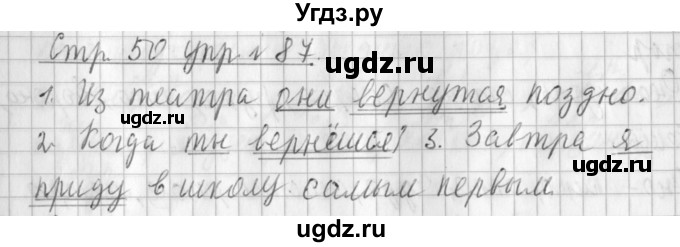 Угдз.ру
Стр. 50 упр. № 87.
ugdz.ru
1. Из театра они вернутся поздно.
ugdz.ru ugdz.ru
2. Когда ты вернёшься? 3. Завтра я
приду в школу самым первым.
ugdz.ru ugdz.ru